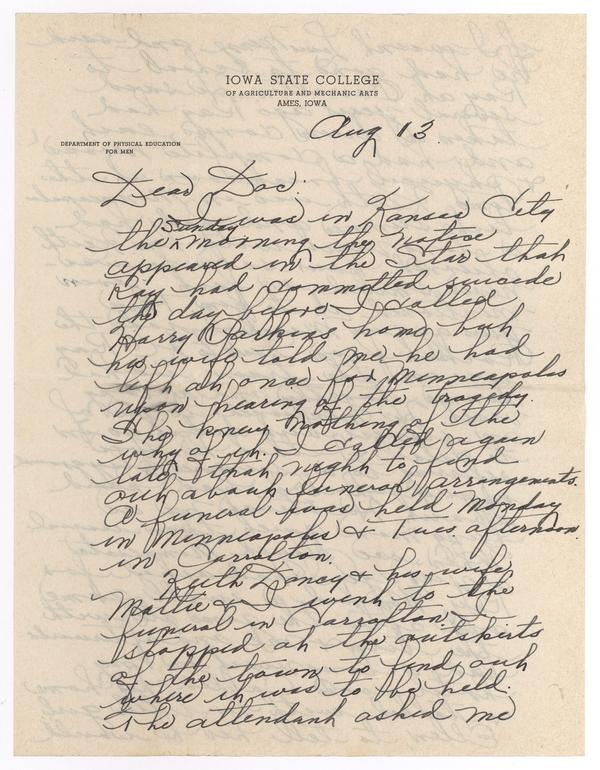 IOWA STATE COLLEGE
OF AGRICULTURE AND MECHANIC ARTS
AMES, IOWA
Aug 13.
DEPARTMENT OF PHYSICAL EDUCATION
FOR MEN
Dear Doc:
I was in Kansas City
the Sunday morning the notice
appeared in the Star that
Ray had committed suicide
the day before. I called
Harry Parkins home but
his wife told me he had
left at once for Minneapolis
upon hearing of the tragedy.
She knew nothing of the
why of it. I called again
late that night to find
out about funeral arrangements.
A funeral was held Monday
in Minneapolis & Tues. afternoon
in Carrolton.
Keith & his wife
Mattie & I went to the
funeral in Carrolton
stopped at the outskirts
of the town to find out
where it was to be held.
The attendant asked me